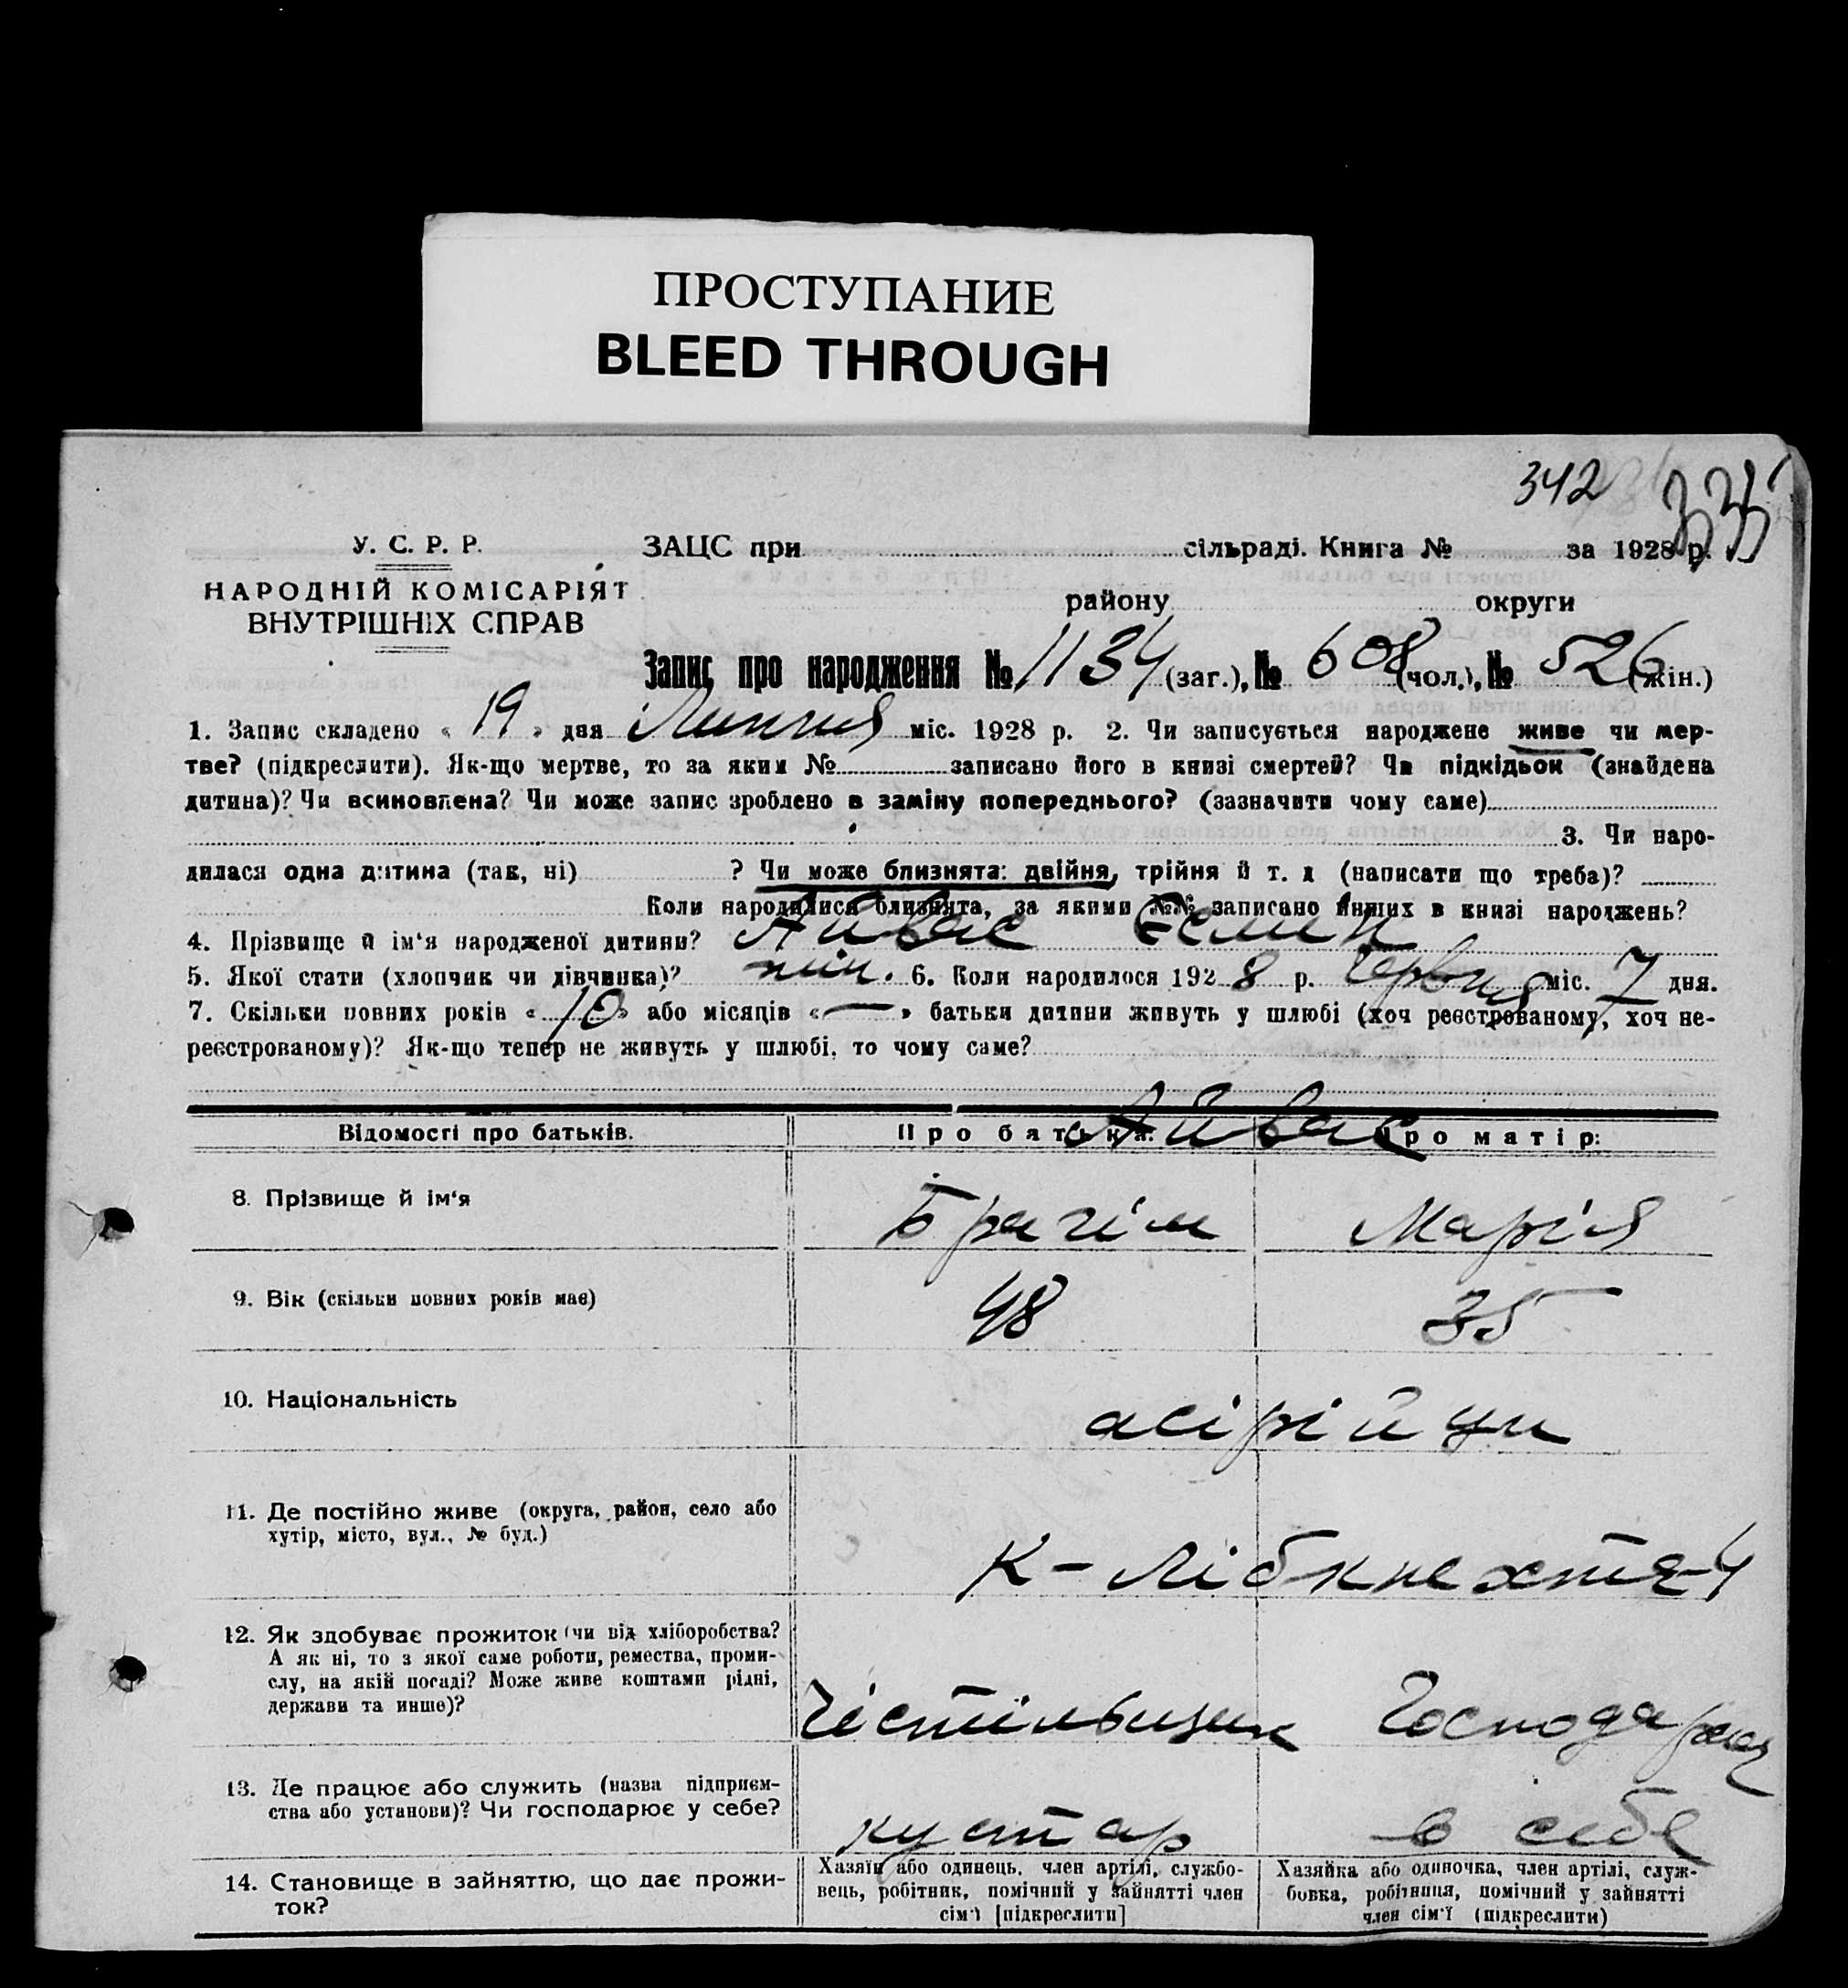 ПРОСТУПАНИЕ
BLEED THROUGH
342
335
У. С. Р. Р.
НАРОДНІЙ КОМІСАРІЯТ
ВНУТРІШНІХ СПРАВ
ЗАЦС при сільраді. Книга № за 1928 р.
району округи
Запис про народження № 1134 (заг.), № 608 (чол.), № 526 (жін.)
1. Запис складено « 19 » дня Липня міс. 1928 р. 2. Чи записується народжене живе чи мер-
тве? (підкреслити). Як-що мертве, то за яким № записано його в книзі смертей? Чи підкідьок (знайдена
дитина)? Чи всиновлена? Чи може запис зроблено в заміну попереднього? (зазначити чому саме)
3. Чи наро-
дилася одна дитина (так, ні) ? Чи може близнята: двійня, трійня й т. д (написати що треба)?
Коли народилися близнята, за якими №№ записано инших в книзі народжень?
4. Прізвище й ім‘я народженої дитини? Айвас
5. Якої стати (хлопчик чи дівчинка)? 6. Коли народилося 192 8 р. Червня міс. 7 дня.
7. Скільки повних років « 10 » або місяців « — » батьки дитини живуть у шлюбі (хоч реєстрованому, хоч не-
реєстрованому)? Як-що тепер не живуть у шлюбі, то чому саме?
Відомості про батьків. Про батька: Про матір:
Айвас
8. Прізвище й ім‘я Брагім Марія
9. Вік (скільки повних років має) 48 35
10. Національність асірійци
11. Де постійно живе (округа, район, село або
хутір, місто, вул., № буд.)
К-Лібкнехта-4
12. Як здобуває прожиток (чи від хліборобства?
А як ні, то з якої саме роботи, ремества, проми-
слу, на якій посаді? Може живе коштами рідні,
держави та инше)?
Чістільщик Господарює
13. Де працює або служить (назва підприєм-
ства або установи)? Чи господарює у себе?
кустар в себе
14. Становище в зайняттю, що дає прожи-
ток?
Хазяїн або одинець, член артілі, службо-
вець, робітник, помічний у зайнятті член
сім‘ї [підкреслити]
Хазяйка або одиночка, член артілі, служ-
бовка, робітниця, помічний у зайнятті
член сім‘ї (підкреслити)